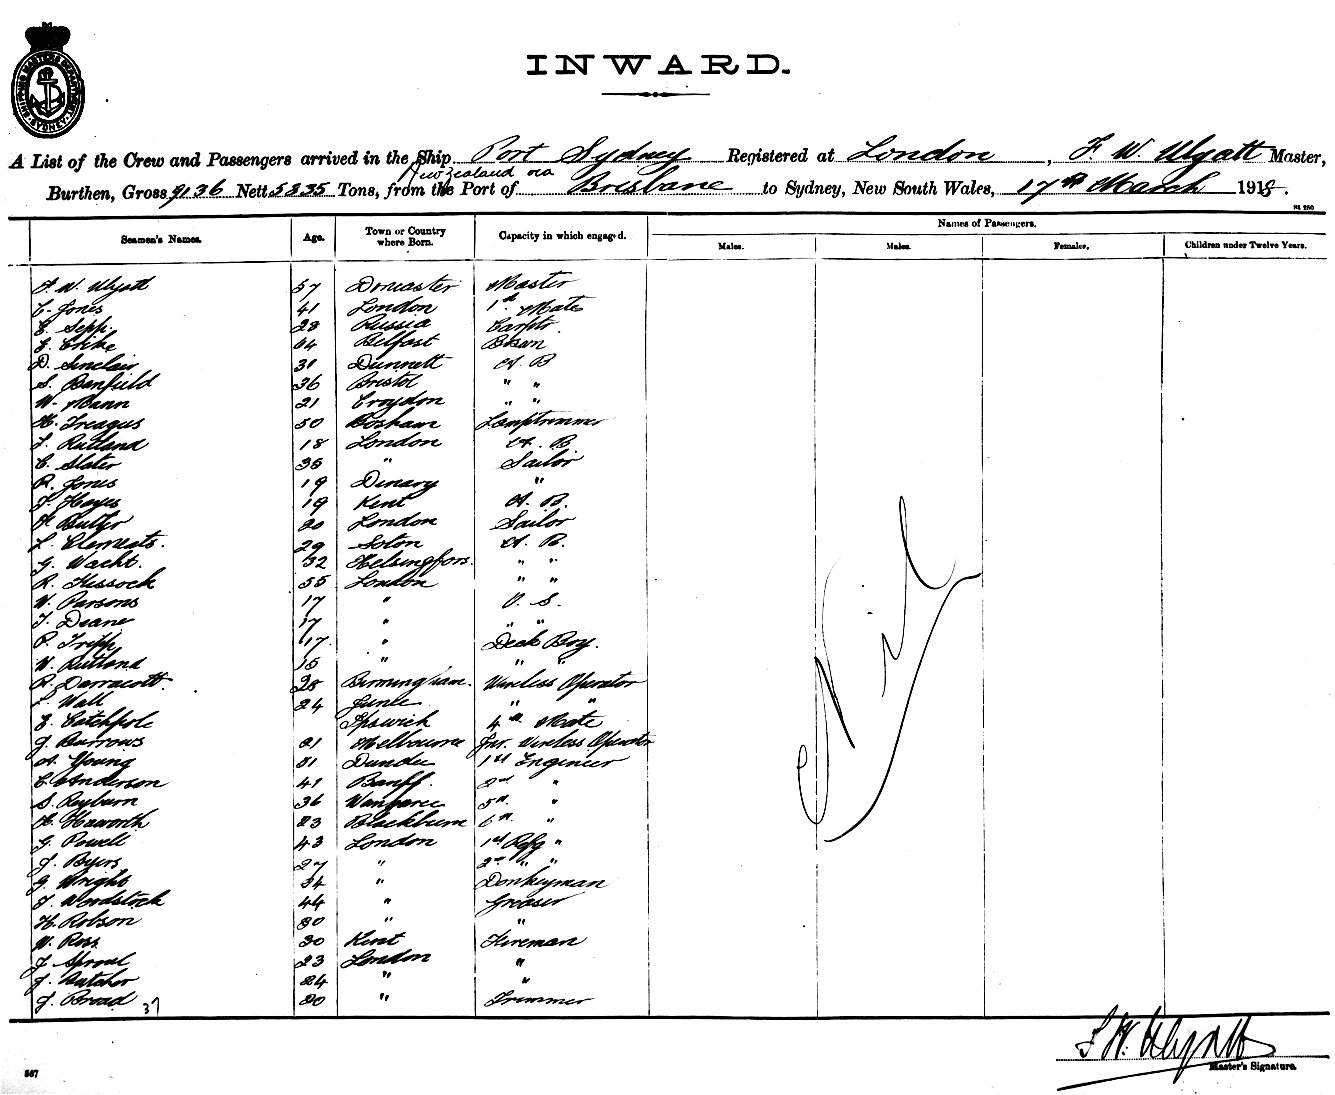 SHIPPING MASTERS DEPARTMENT SYDNEY
INWARD.
A List of the Crew and Passengers arrived in the Ship Port Sydney Registered at London, F. W. Wyatt Master,
New Zealand via
Burthen, Gross 9136 Nett 5835 Tons, from the Port of Brisbane to Sydney, New South Wales, 17th March 1918.
Seamen's Names. Age. Town or Country where Born. Capacity in which engaged. Names of Passengers.
Males. Males. Females. Children under Twelve Years.
F. W. Wyatt 57 Doncaster Master
C. Jones 41 London 1st Mate
E. Sepp 28 Russia Carptr.
E. 64 Belfast Bosun
D. Sinclair 31 Dunnett A. B
S. Banfield 36 Bristol " "
W. Mann 21 Croydon " "
H. Treagus 50 Bosham Lamptrimmer
F. Rutland 18 London A. B
C. Slater 35 " Sailor
R. Jones 19 "
F. Hayes 19 Kent A. B.
F. Butler 20 London Sailor
L. Clements. 29 Soton A. B.
G. Wacht. 32 Helsingfors. " "
R. Kissock 55 London " "
W. Parsons 17 " O. S.
T. Deane 17 " " "
P. Tripp 17. " Deck Boy.
W. Rutland 15 " " "
R. Darracott. 28 Birmingham. Wireless Operator
L. Wall 24 " "
E. Catchpole Ipswich 4th Mate
J. Burrows 21 Melbourne Jnr. Wireless Operator
A. Young 31 Dundee 1st Engineer
C. Anderson 41 Banff. 2nd "
S. Reyburn 36 5th. "
H. Haworth 23 Blackburn 6th. "
G. Powell 43 London 1st Refg "
J. Byers 27 " 2nd " "
G. Wright 34 " Donkeyman
F. Woodstock 44 " Greaser
H. Robson 30 " "
W. Ross 30 Kent Fireman
J. Sproul 23 London "
J. Butcher 24 " "
J. Broad 20 " Trimmer
37
Nil
F. W. Wyatt
Master's Signature.
567